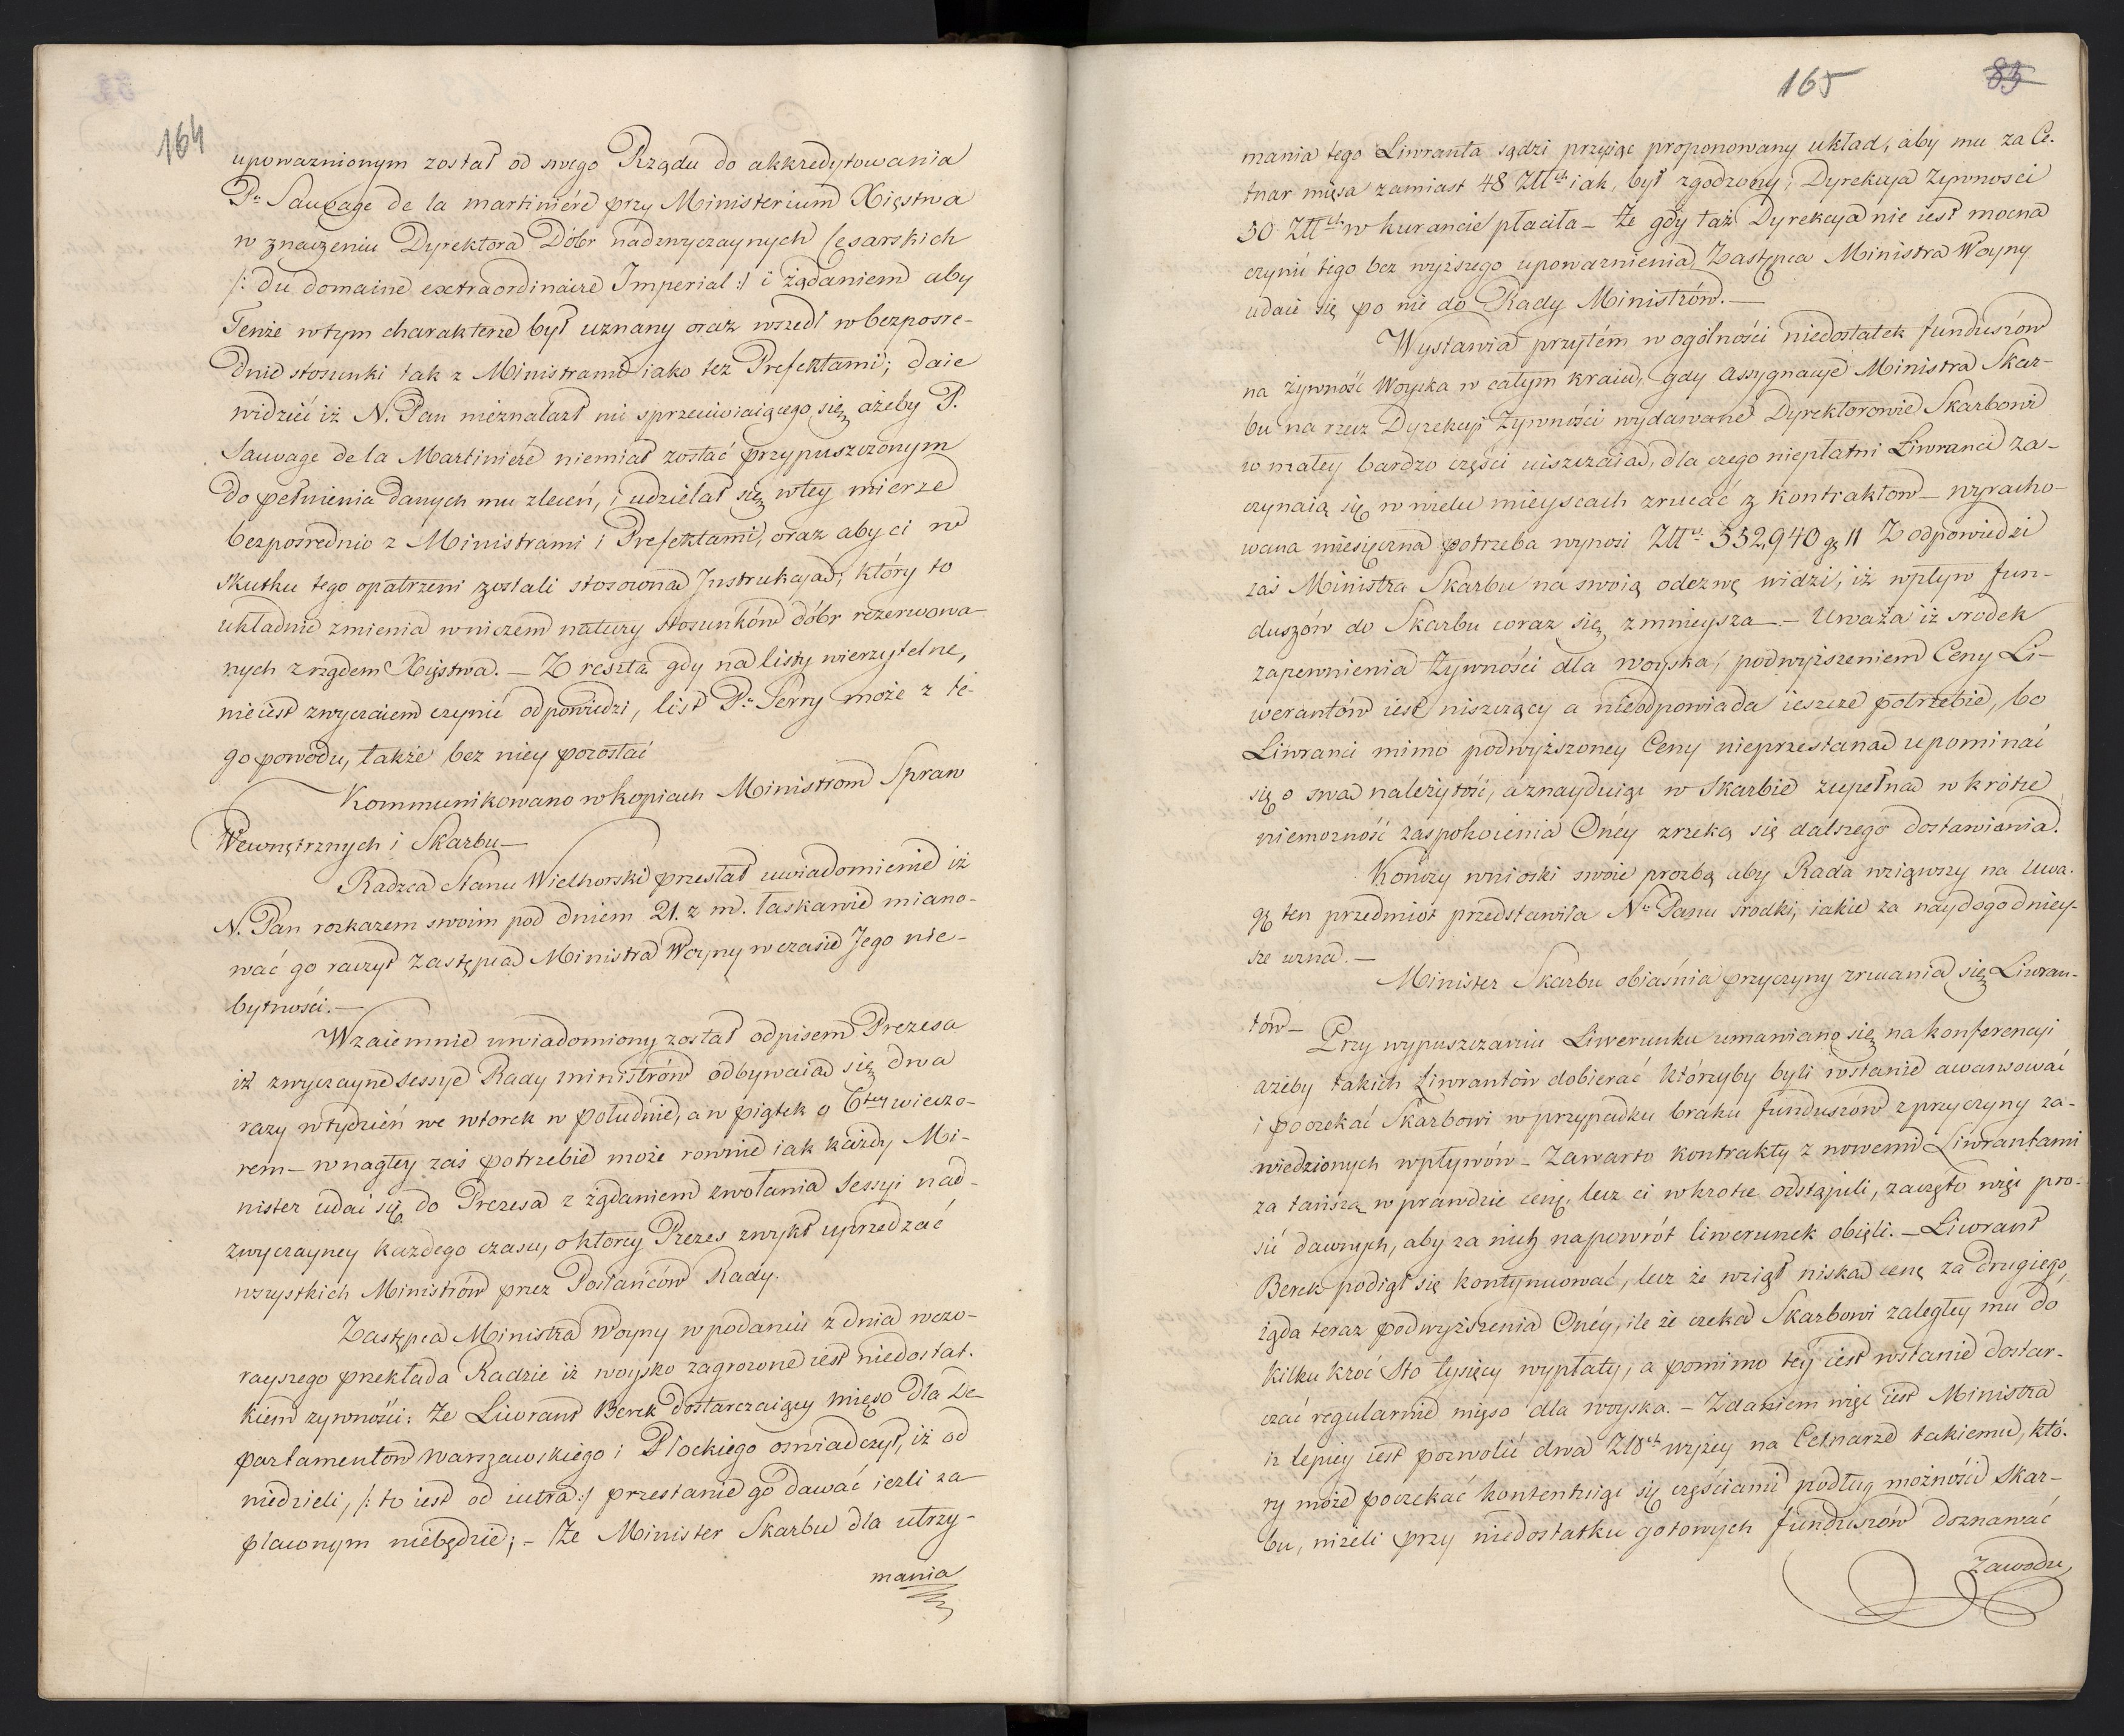 164
upoważnionym został od swego Rządu do akkredytowania
Pa Sauvage de la martiniére przy Ministerium Xięstwa
w znaczeniu Dyrektora Dóbr nadzwyczaynych Cesarskich
/: du domaine extraordinaire Imperial :/ i żądaniem aby
Tenże w tym charakterze był uznany oraz wszedł w bezpośre-
dnie stosunki tak z Ministrami iako też Prefektami; daie
widzieć iż N. Pan nieznalazł nic sprzeciwiaiącego się, ażeby P.
Sauvage de la Martiniére niemiał zostać przypuszczonym
do pełnienia danych mu zleceń, i udzielał się w tey mierze
bezpośrednio z Ministrami i Prefektami, oraz aby ci w
skutku tego opatrzeni zostali stosowną Instrukcyą, który to
układ nie zmienia w niczem natury stosunków dóbr rezerwowa-
nych z rządem Xięstwa. — Z resztą gdy na listy wierzytelne,
nie iest zwyczaiem czynić odpowiedzi, list Pa Serry może z te-
go powodu, także bez niey pozostać
Kommunikowano w kopiach Ministrom Spraw
Wewnętrznych i Skarbu —
Radzca Stanu Wielhorski przesłał uwiadomienie iż
N. Pan rozkazem swoim pod dniem 21. z. m. łaskawie miano-
wać go raczył Zastępcą Ministra Woyny w czasie Jego nie-
bytności. —
Wzaiemnie uwiadomiony został odpisem Prezesa
iż zwyczayne Sessye Rady ministrów odbywaią się dwa
razy w tydzień we wtorek w południe, a w piątek o 6tey wieczo-
rem — w nagłey zaś potrzebie może rownie iak każdy Mi-
nister udać się do Prezesa z żądaniem zwołania Sessyi nad-
zwyczayney każdego czasu, o ktorey Prezes zwykł uprzedzać
wszystkich Ministrów przez Posłańców Rady.
Zastępca Ministra Woyny w podaniu z dnia wczo-
rayszego przekłada Radzie iż woysko zagrożone iest niedostat-
kiem żywności: Że Liwrant Berek dostarczaiący mięso dla De-
partamentów Warszawskiego i Płockiego oświadczył, iż od
niedzieli, /: to iest od iutra :/ przestanie go dawać ieżli za-
płaconym niebędzie; — Że Minister Skarbu dla utrzy-
mania
165
83
mania tego Liwranta sądzi przyiąć proponowany układ, aby mu za Ce-
tnar mięsa zamiast 48 Złłch iak był zgodzony, Dyrekcya Żywności
50 Złłch w kurancie płaciła — Że gdy taż Dyrekcya nie iest mocna
czynić tego bez wyższego upoważnienia, Zastępca Ministra Woyny
udaie się po nie do Rady Ministrów. —
Wystawia przytém w ogólności niedostatek funduszów
na żywność Woyska w całym kraiu, gdy assygnacye Ministra Skar-
bu na rzecz Dyrekcyi Żywności wydawane Dyrektorowie Skarbowi
w małey bardzo części uiszczaią, dla czego niepłatni Liwranci za-
czynaią się w wielu mieyscach zrzucać z kontraktów — wyracho-
wana miesięczna potrzeba wynosi Złłch 552,940 g 11 Z odpowiedzi
zaś Ministra Skarbu na swoią odezwę widzi, iż wpływ fun-
duszów do Skarbu coraz się zmnieysza — Uważa iż srodek
zapewnienia Żywności dla woyska, podwyższeniem Ceny Li-
werantów iest niszczący a nieodpowiada ieszcze potrzebie, bo
Liwranci mimo podwyższoney Ceny nieprzestaną upominać
się o swą należytość, a znayduiąc w Skarbie zupełną w krótce
niemożność zaspokoienia Onéy zrzeką się dalszego dostawiania.
Kończy wnioski swoie prozbą aby Rada wziąwszy na uwa-
gę ten przedmiot przedstawiła Nu Panu środki, iakie za naydogodniey-
sze uzna. —
Minister Skarbu obiaśnia przyczyny zrzucania się Liwran-
tów —
Przy wypuszczaniu Liwerunku umawiano się na konferencyi
ażeby takich Liwrantów dobierać którzyby byli w stanie awansować
i poczekać Skarbowi w przypadku braku funduszów z przyczyny za-
wiedzionych wpływów — Zawarto kontrakty z nowemi Liwrantami
za tańszą w prawdzie cenę, lecz ci wkrotce odstąpili, zaczęto więc pro-
sić dawnych, aby za nich napowrót liwerunek obięli. — Liwrant
Berek podiął się kontynuować, lecz że wziął niską cenę za drugiego,
żąda teraz podwyższenia Onéy, ile że czeka Skarbowi zaległey mu do
kilku kroć Sto tysięcy wypłaty, a pomimo tey iest w stanie dostar-
czać regularnie mięso dla woyska. — Zdaniem więc iest Ministra
iż lepiey iest pozwolić dwa Złłch wyżey na Cetnarze takiemu, któ-
ry może poczekać kontentuiąc się częściami podług możności Skar-
bu, niżeli przy niedostatku gotowych funduszów doznawać
Zawodu,